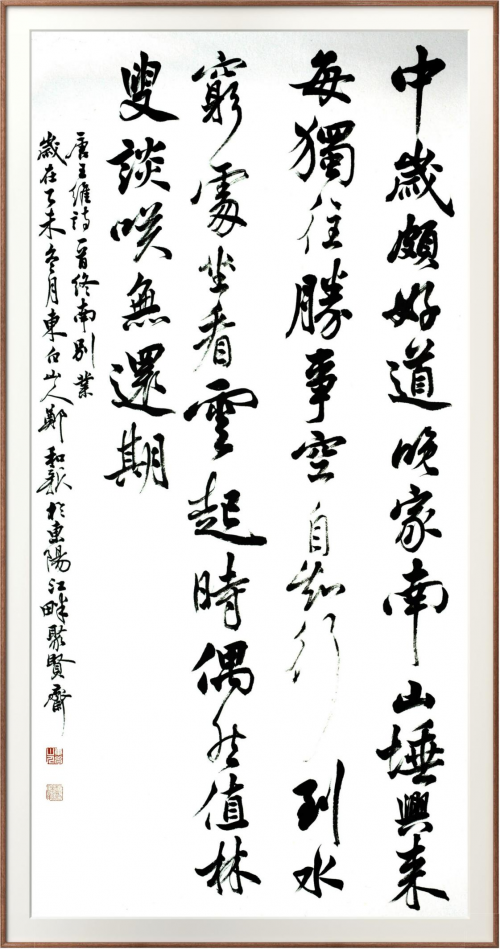 中歲頗好道晚家南山埵興来
每獨往勝事空自知行到水
窮處坐看雲起時偶然值林
叟談咲無還期
唐王維詩一首終南別業
歲在丁未冬月東白山人鄭和新於東陽江畔聚賢齋